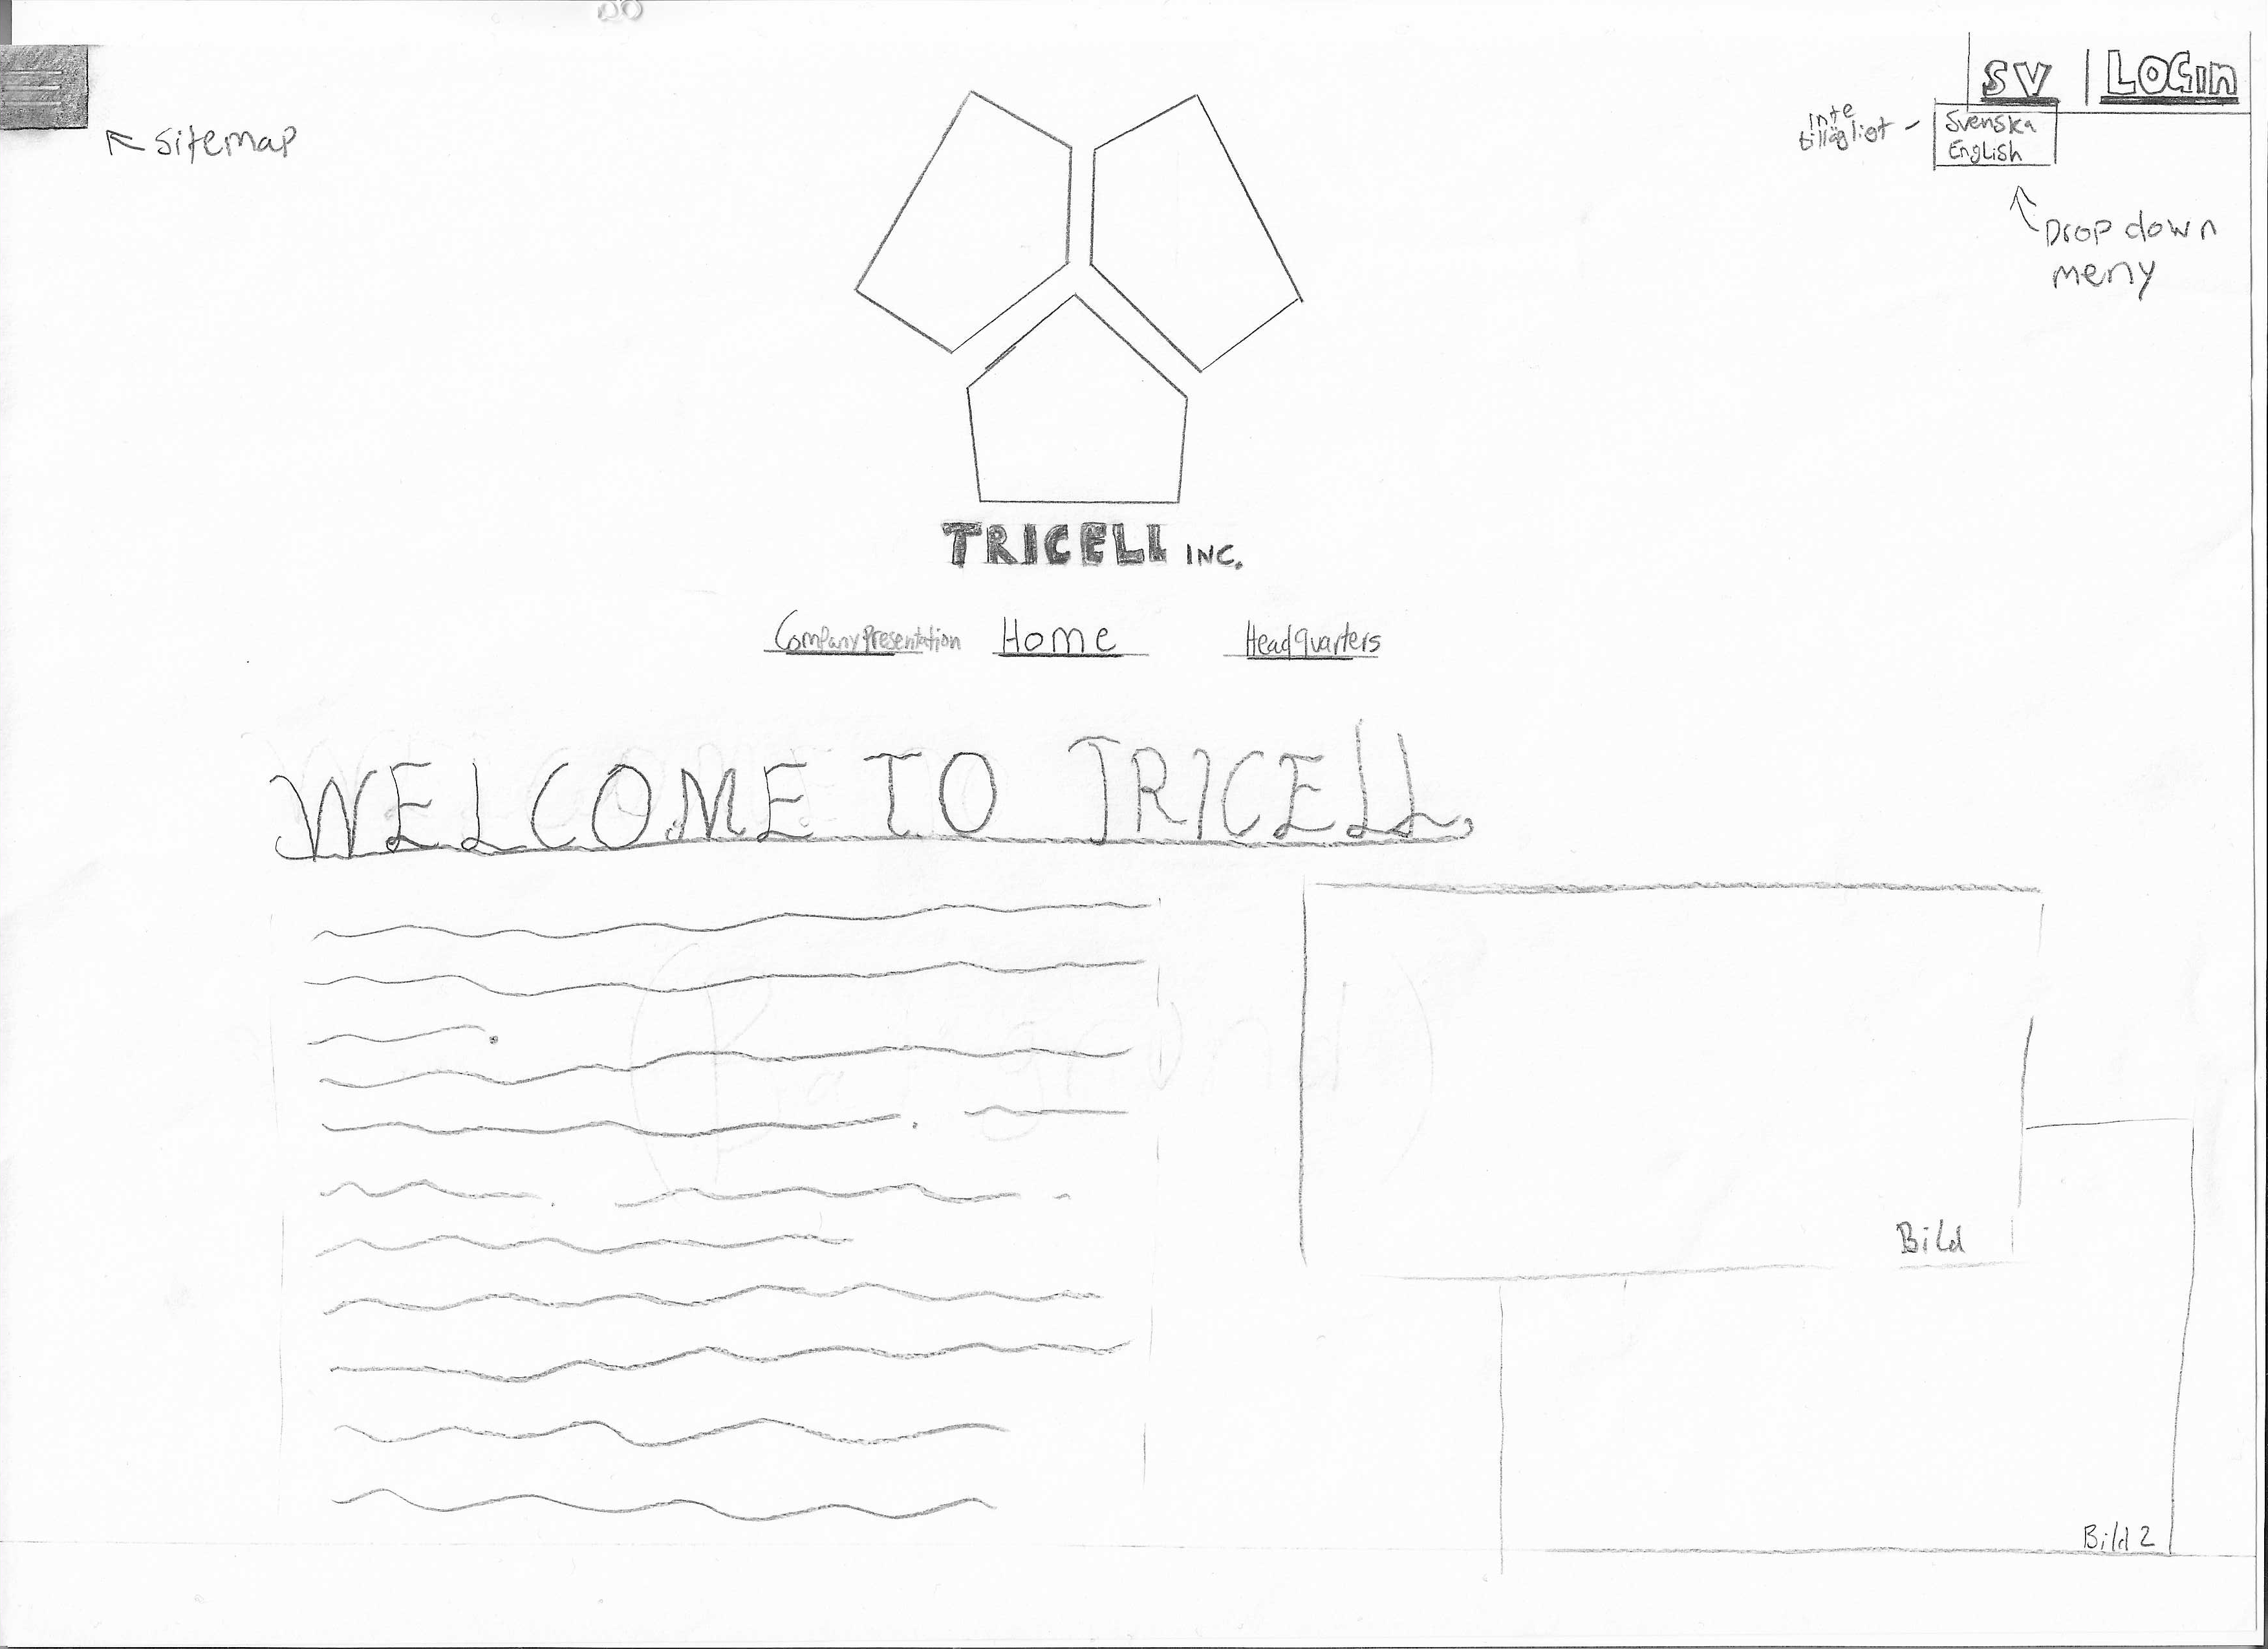 SV | LOGIn
Sitemap
inte
tillägligt -
Svenska
English
Drop down
meny
TRICELL INC.
Company Presentation
Home
Headquarters
WELCOME TO TRICELL
Bild
Bild 2